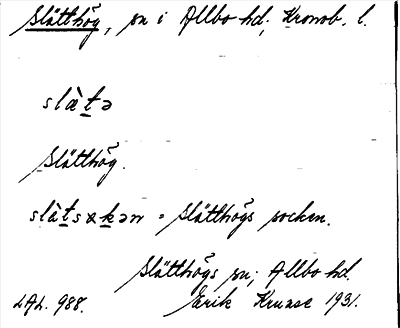 Slätthög, sn i Allbo hd, Kronob. l.
slàtə
Slätthög.
slàtsɷkən = Slätthögs socken.
Slätthögs sn; Allbo hd
LAL. 988. Erik Kruuse 1931.